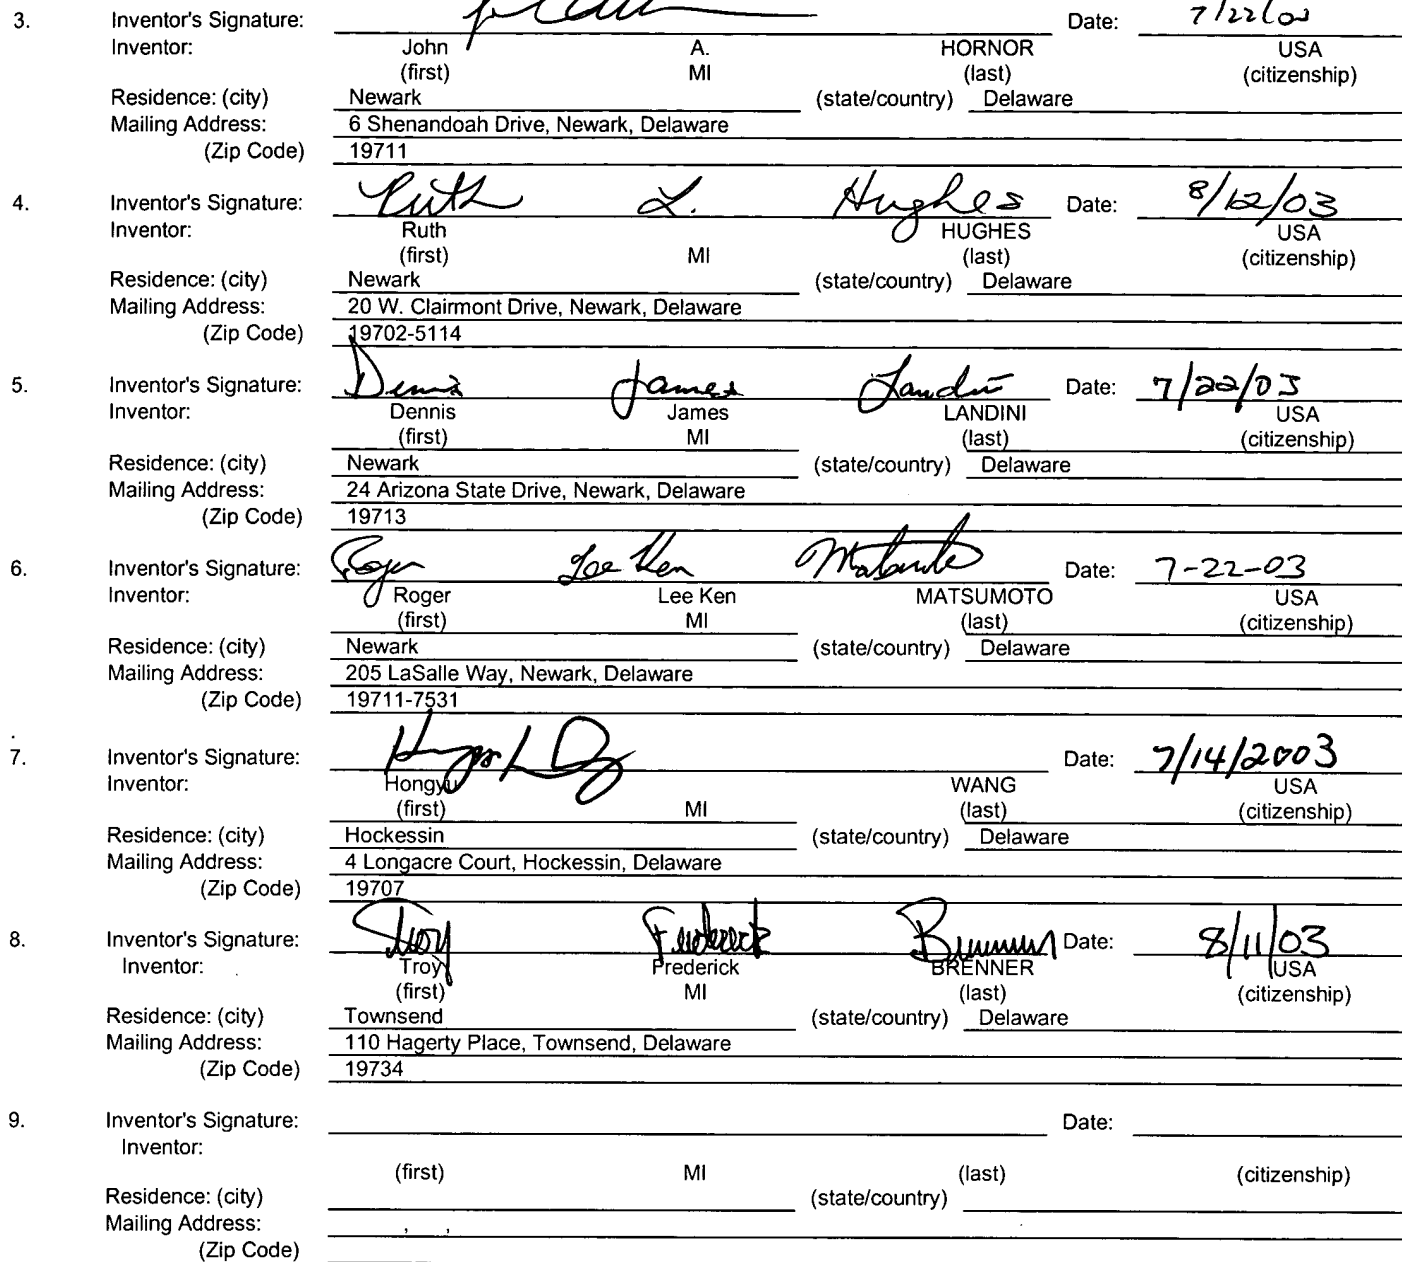 3. Inventor's Signature: Date: 7/22/03
Inventor: John A. HORNOR USA
(first) MI (last) (citizenship)
Residence: (city) Newark (state/country) Delaware
Mailing Address: 6 Shenandoah Drive, Newark, Delaware
(Zip Code) 19711
4. Inventor's Signature: Ruth L. Hughes Date: 8/12/03
Inventor: Ruth HUGHES USA
(first) MI (last) (citizenship)
Residence: (city) Newark (state/country) Delaware
Mailing Address: 20 W. Clairmont Drive, Newark, Delaware
(Zip Code) 19702-5114
5. Inventor's Signature: Dennis James Landini Date: 7/22/03
Inventor: Dennis James LANDINI USA
(first) MI (last) (citizenship)
Residence: (city) Newark (state/country) Delaware
Mailing Address: 24 Arizona State Drive, Newark, Delaware
(Zip Code) 19713
6. Inventor's Signature: Roger Lee Ken Matsumoto Date: 7-22-03
Inventor: Roger Lee Ken MATSUMOTO USA
(first) MI (last) (citizenship)
Residence: (city) Newark (state/country) Delaware
Mailing Address: 205 LaSalle Way, Newark, Delaware
(Zip Code) 19711-7531
7. Inventor's Signature: Date: 7/14/2003
Inventor: Hongyu WANG USA
(first) MI (last) (citizenship)
Residence: (city) Hockessin (state/country) Delaware
Mailing Address: 4 Longacre Court, Hockessin, Delaware
(Zip Code) 19707
8. Inventor's Signature: Troy Frederick Brenner Date: 8/11/03
Inventor: Troy Prederick BRENNER USA
(first) MI (last) (citizenship)
Residence: (city) Townsend (state/country) Delaware
Mailing Address: 110 Hagerty Place, Townsend, Delaware
(Zip Code) 19734
9. Inventor's Signature: Date:
Inventor:
(first) MI (last) (citizenship)
Residence: (city) (state/country)
Mailing Address: , ,
(Zip Code)